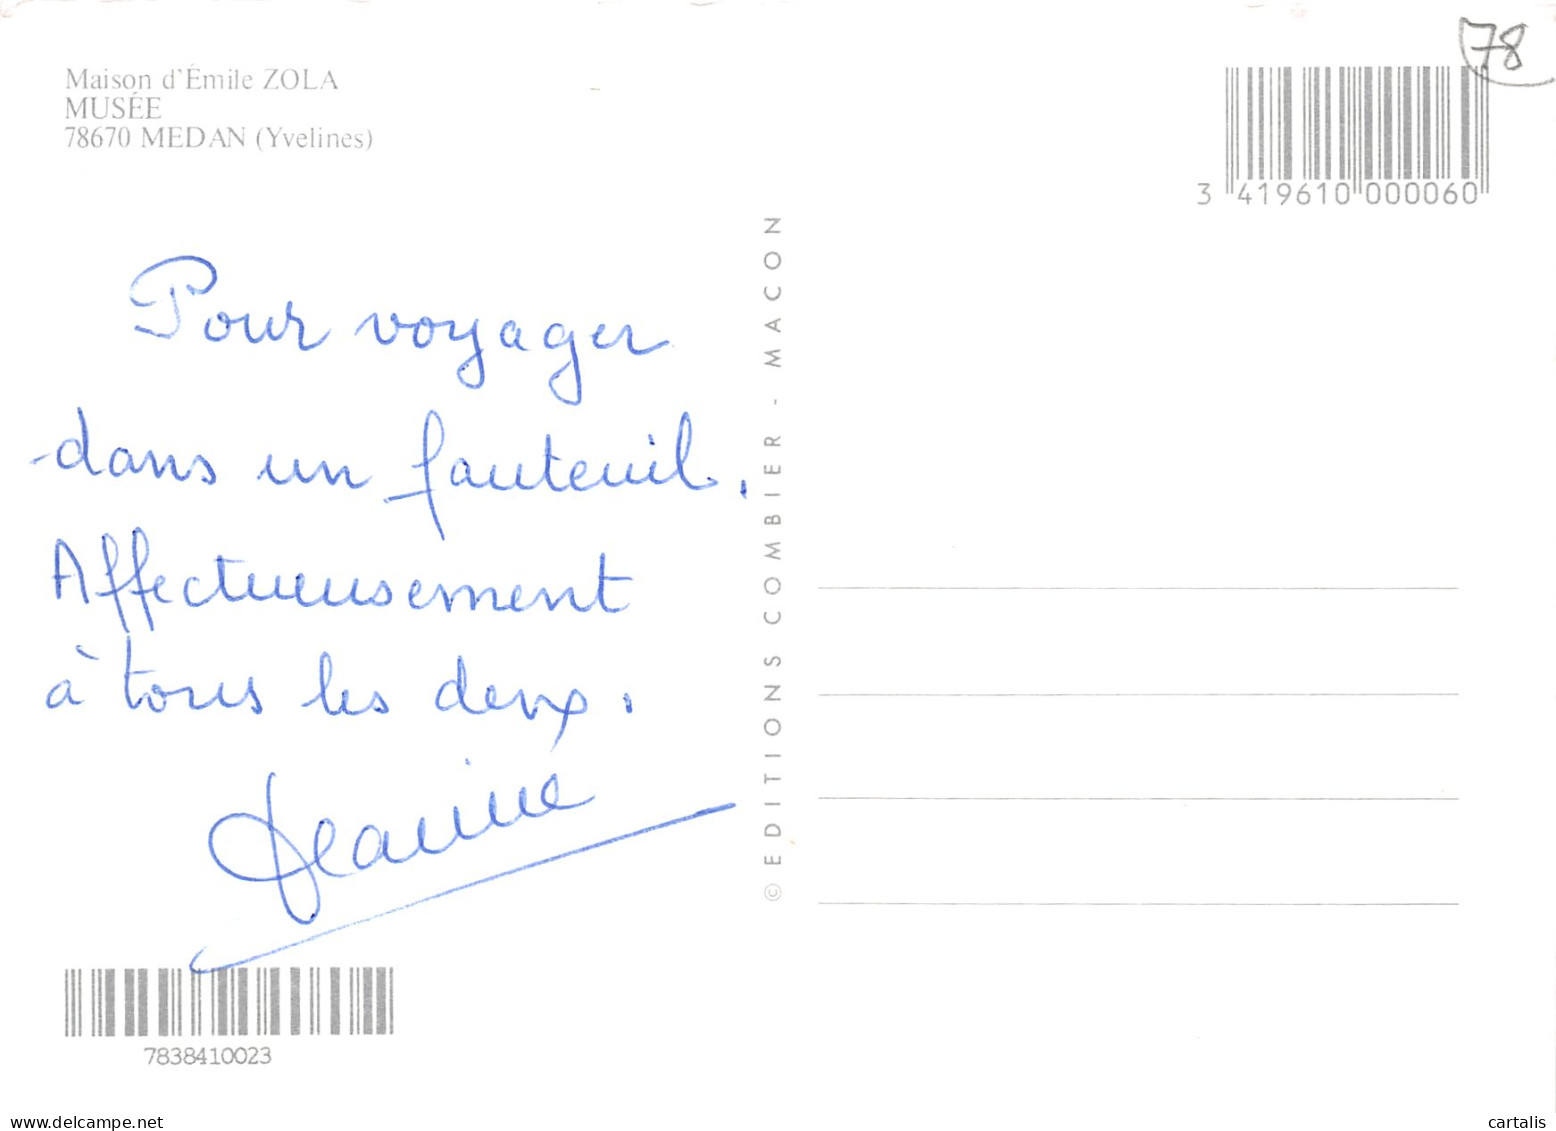 Maison d'Émile ZOLA
MUSÉE
78670 MEDAN (Yvelines)
78
3 419610 000060
Pour voyager
dans un fauteuil.
Affectueusement
à tous les deux.
Jeanine
© EDITIONS COMBIER - MACON
7838410023
www.delcampe.net
cartalis